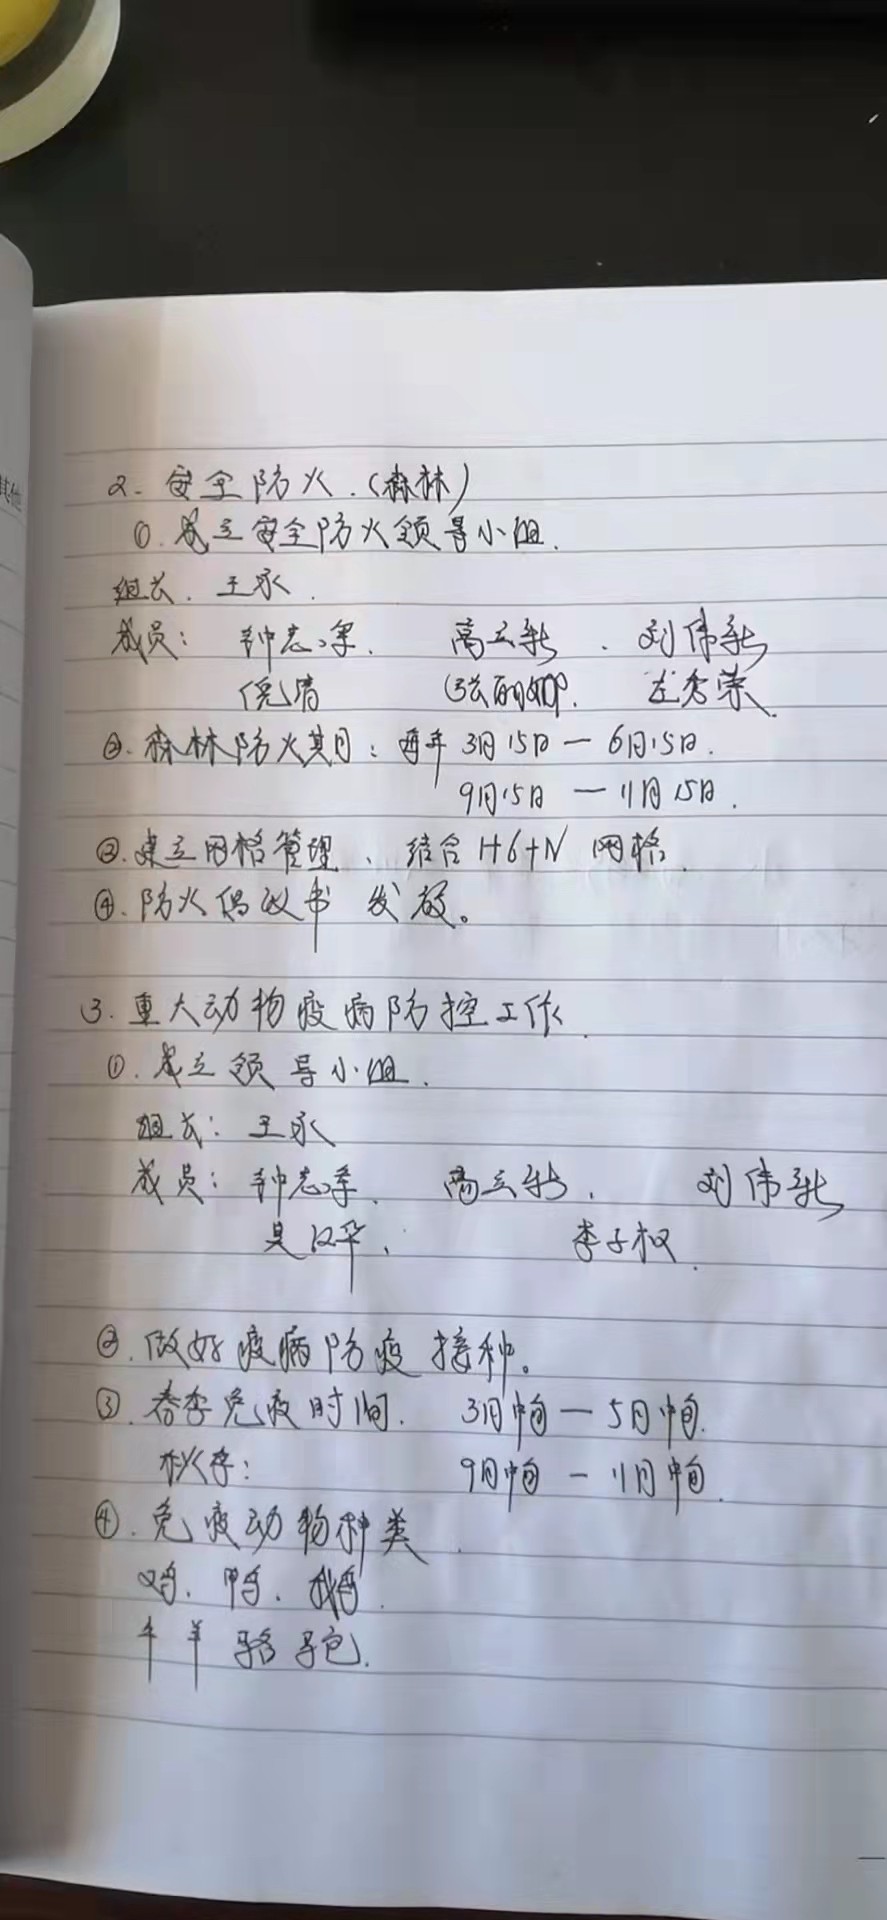 其他
2. 安全防火.(森林)
①. 成立安全防火领导小组.
组长. 王永.
成员: 钟志军. 高云新. 刘伟新
倪清 张丽娜. 左秀荣.
②. 森林防火期: 每年 3月15日 — 6月15日.
9月15日 — 11月15日.
③. 建立网格管理、结合 1+6+N 网格.
④. 防火倡议书 发放。
3. 重大动物疫病防控工作.
①. 成立领导小组.
组长: 王永
成员: 钟志 高云新. 刘伟新
吴汉华. 李子权.
②. 做好疫病防疫接种。
③. 春季免疫时间. 3月中旬 — 5月中旬.
秋季: 9月中旬 — 11月中旬.
④. 免疫动物种类.
鸡. 鸭. 鹅.
牛 羊 骆驼.